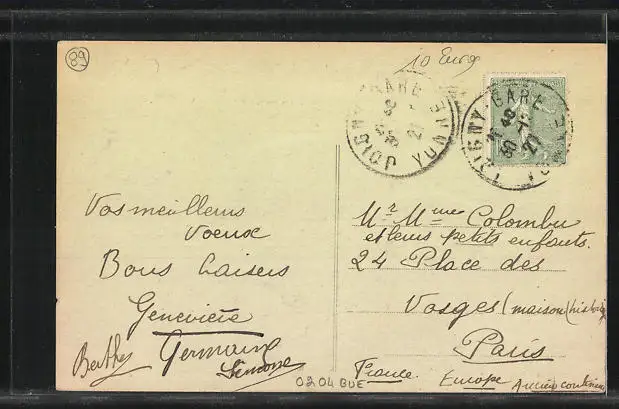 89
10 Euros
JOIGNY GARE
YONNE
JOIGNY GARE
YONNE
Vos meilleurs
voeux
Bons baisers
Geneviève
Berthe Germaine
Simone
Mr Mme Colombu
et leurs petits enfants.
24 Place des
Vosges (maison historiq
Paris
France. Europe Ancien continen
0204 BUE